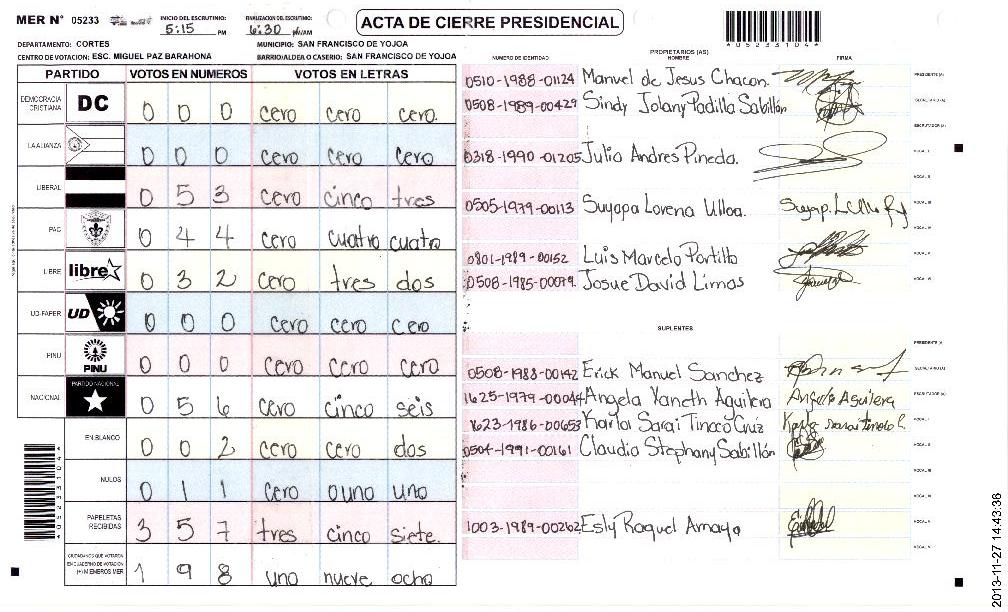 MER N° 05233 INICIO DEL ESCRUTINIO: 5:15 PM FINALIZACION DEL ESCRUTINIO: 6:30 PM/AM
ACTA DE CIERRE PRESIDENCIAL
*05233104*
DEPARTAMENTO: CORTES MUNICIPIO: SAN FRANCISCO DE YOJOA
CENTRO DE VOTACION: ESC. MIGUEL PAZ BARAHONA BARRIO/ALDEA O CASERIO: SAN FRANCISCO DE YOJOA
PARTIDO VOTOS EN NUMEROS VOTOS EN LETRAS
DEMOCRACIA CRISTIANA DC 0 0 0 cero cero cero.
LA ALIANZA 0 0 0 cero cero cero
LIBERAL 0 5 3 cero cinco tres
PAC 0 4 4 cero cuatro cuatro
LIBRE libre 0 3 2 cero tres dos
UD-FAPER UD 0 0 0 cero cero cero
PINU PINU 0 0 0 cero cero cero
NACIONAL PARTIDO NACIONAL 0 5 6 cero cinco seis
EN BLANCO 0 0 2 cero cero dos
NULOS 0 1 1 cero uno uno
PAPELETAS RECIBIDAS 3 5 7 tres cinco siete.
CIUDADANOS QUE VOTARON EN CUADERNO DE VOTACION (+) MIEMBROS MER 1 9 8 uno nueve ocho
PROPIETARIOS (AS)
NUMERO DE IDENTIDAD NOMBRE FIRMA
0510-1988-01124 Manuel de Jesus Chacon. PRESIDENTE(A)
0508-1989-00429 Sindy Jolany Padilla Sabillón SECRETARIO(A)
ESCRUTADOR(A)
0318-1990-01205 Julio Andres Pineda. VOCAL I
VOCAL II
0505-1979-00113 Suyapa Lorena Ulloa. VOCAL III
0801-1989-00152 Luis Marcelo Portillo
0508-1985-00079. Josue David Limas
SUPLENTES
PRESIDENTE(A)
0508-1988-00142 Erick Manuel Sanchez SECRETARIO(A)
1625-1979-00044 Angela Yaneth Aguilera Angela Aguilera ESCRUTADOR(A)
1623-1986-00653 Karla Sarai Tinoco Cruz VOCAL I
0504-1991-00161 Claudia Stephany Sabillón VOCAL II
VOCAL III
VOCAL IV
1003-1989-00262 Esly Raquel Amaya VOCAL V
2013-11-27 14:43:36